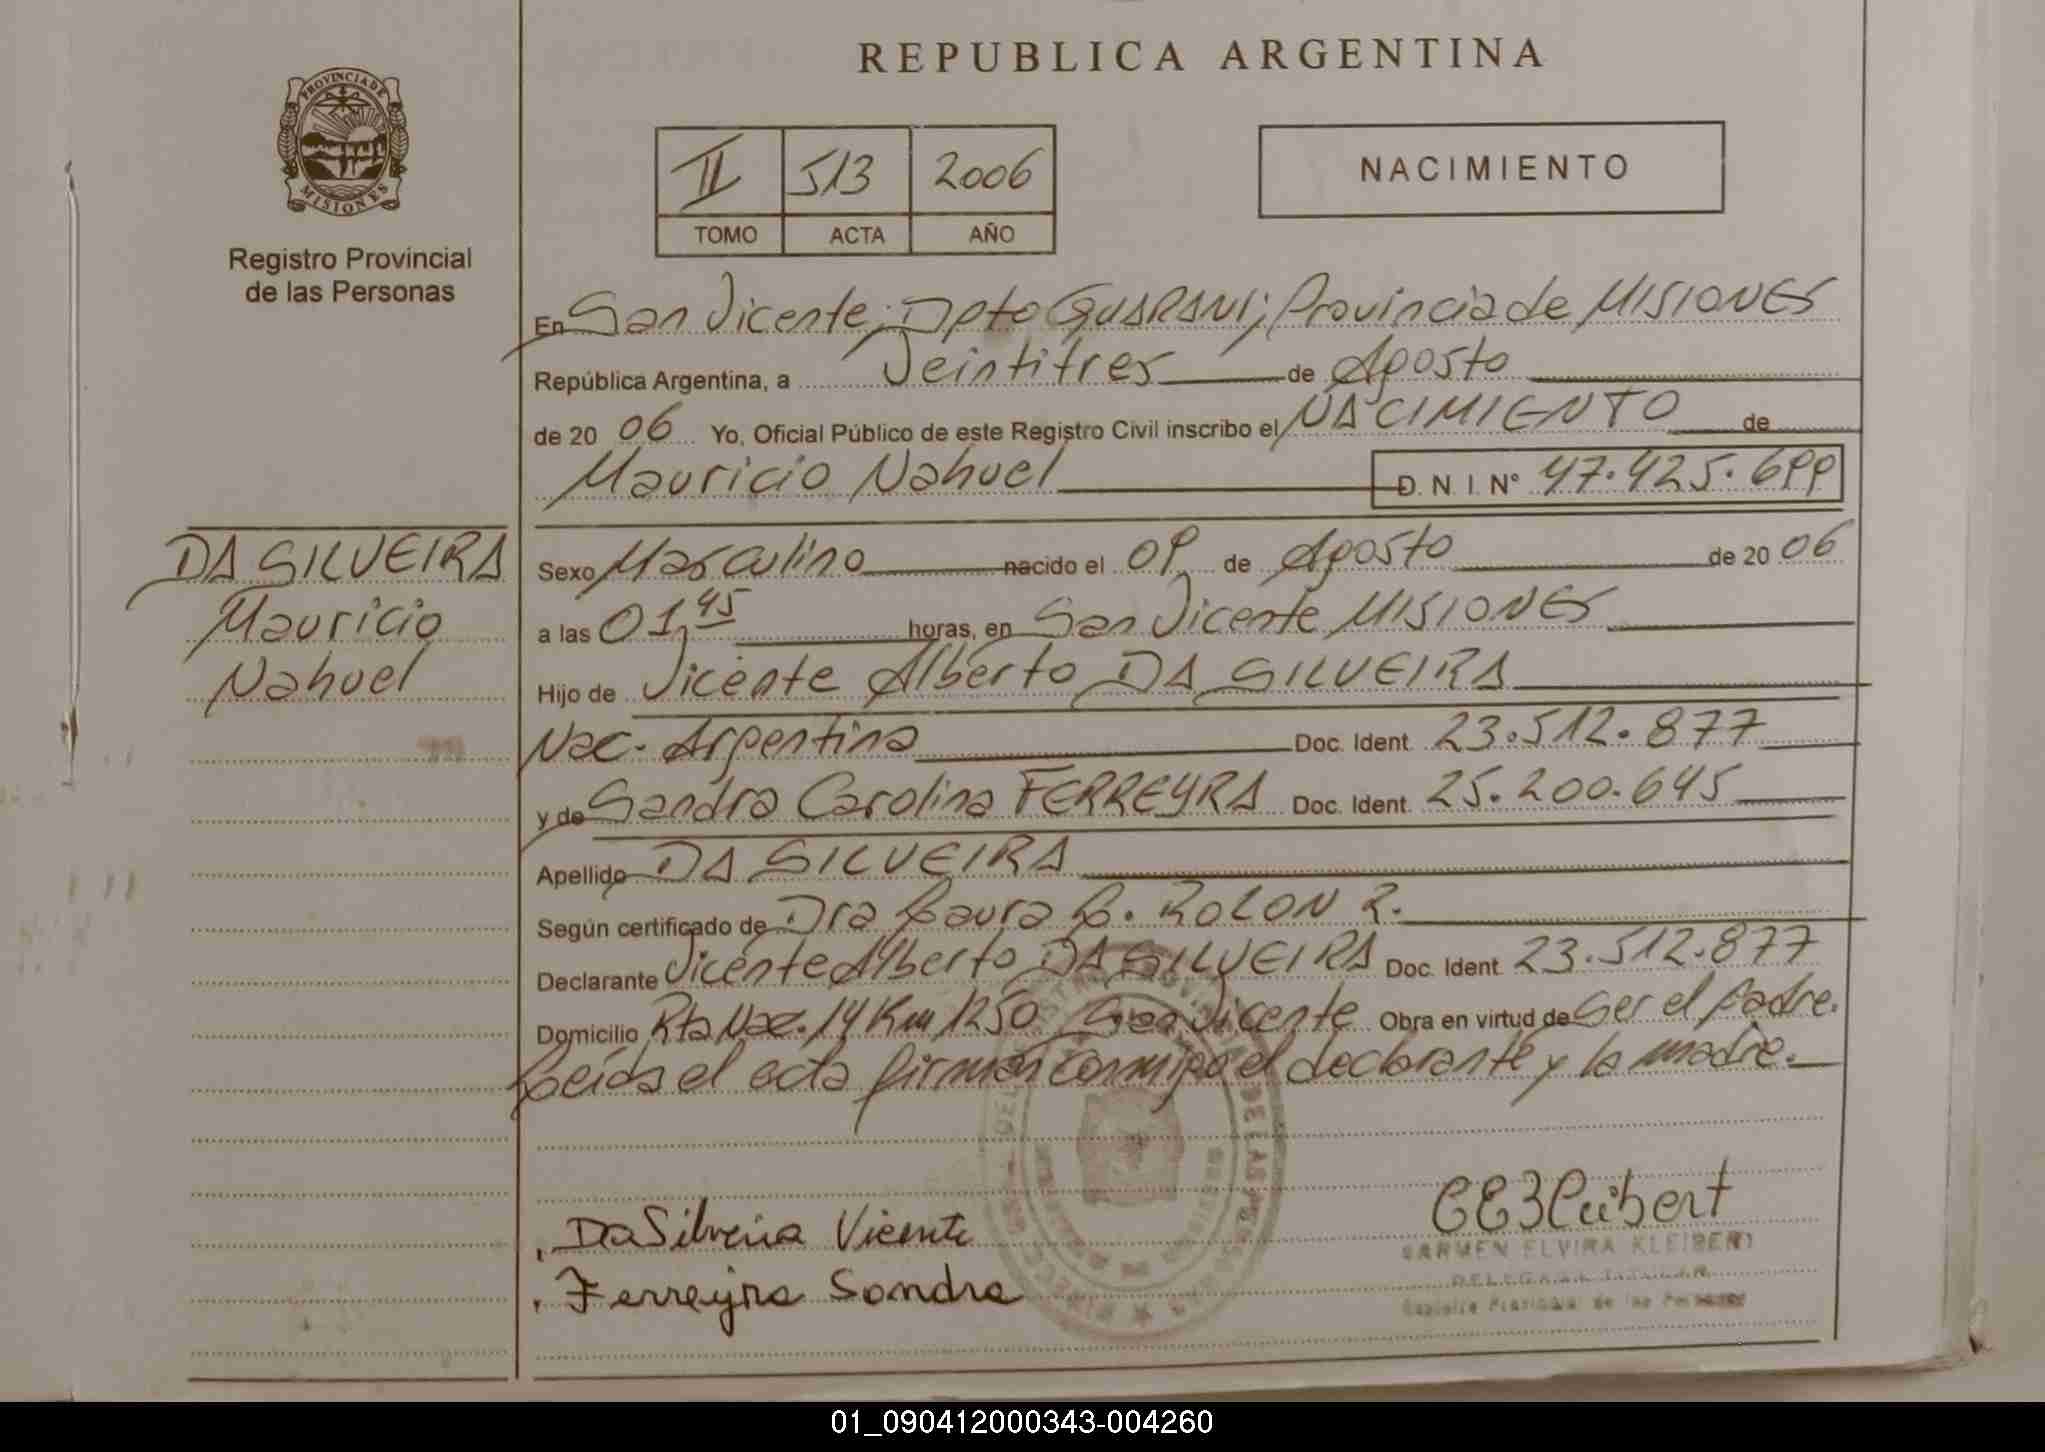 REPUBLICA ARGENTINA
PROVINCIA DE MISIONES
Registro Provincial
de las Personas
II 513 2006
TOMO ACTA AÑO
NACIMIENTO
En San Vicente; Dpto GUARANI; Provincia de MISIONES
República Argentina, a Veintitres de Agosto
de 20 06 Yo, Oficial Público de este Registro Civil inscribo el NACIMIENTO de
Mauricio Nahuel D. N. I. N° 47.425.699
DA SILVEIRA
Mauricio
Nahuel
Sexo Masculino nacido el 09 de Agosto de 20 06
a las 01,45 horas, en San Vicente MISIONES
Hijo de Vicente Alberto DA SILVEIRA
Nac. Argentina Doc. Ident. 23.512.877
y de Sandra Carolina FERREYRA Doc. Ident. 25.200.645
Apellido DA SILVEIRA
Según certificado de Dra Laura L. ROLON R.
Declarante Vicente Alberto DA SILVEIRA Doc. Ident. 23.512.877
Domicilio Rta Nac. 14 Km 1250 San Vicente Obra en virtud de Ser el padre.
Leída el acta firman conmigo el declarante y la madre.
Da Silveira Vicente
Ferreyra Sandra
CEKleibert
CARMEN ELVIRA KLEIBERT
DELEGADA TITULAR
Registro Provincial de las Personas
01_090412000343-004260